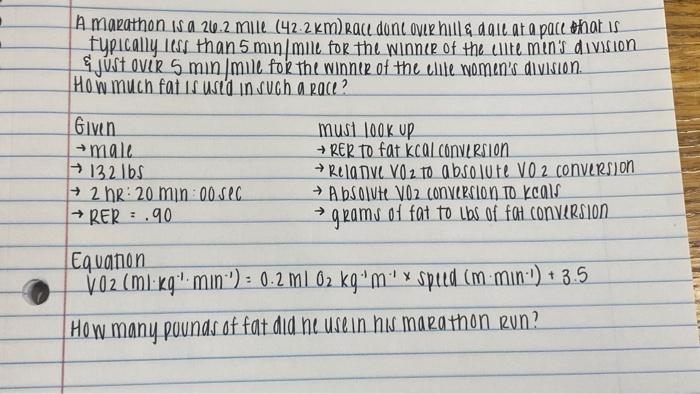 A marathon is a 26.2 mile (42.2 km) race done over hill & dale at a pace that is
typically less than 5 min/mile for the winner of the elite men's division
& just over 5 min/mile for the winner of the elite women's division.
How much fat is used in such a race?
Given
→ male
→ 132 lbs
→ 2 hr: 20 min: 00 sec
→ RER = .90
must look up
→ RER to fat kcal conversion
→ Relative VO2 to absolute VO2 conversion
→ Absolute VO2 conversion to kcals
→ grams of fat to lbs of fat conversion
Equation
VO2 (ml·kg⁻¹·min⁻¹) = 0.2 ml O2 kg⁻¹m⁻¹ × speed (m·min⁻¹) + 3.5
How many pounds of fat did he use in his marathon run?